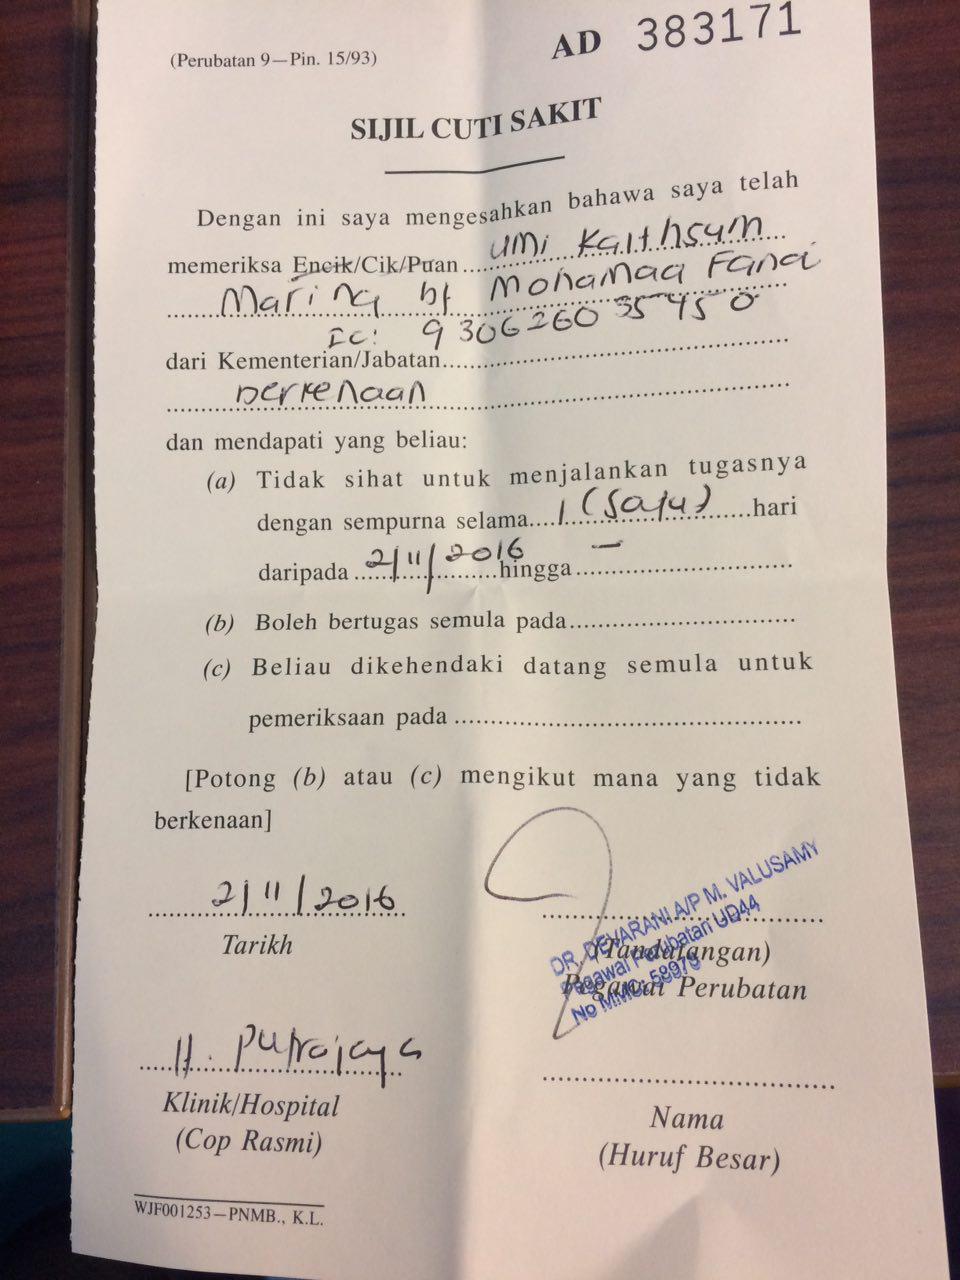 (Perubatan 9—Pin. 15/93)
AD 383171
SIJIL CUTI SAKIT
Dengan ini saya mengesahkan bahawa saya telah
memeriksa Encik/Cik/Puan umi Kalthsum
Marina bt Mohamad
Ic:
dari Kementerian/Jabatan
berkenaan
dan mendapati yang beliau:
(a) Tidak sihat untuk menjalankan tugasnya
dengan sempurna selama 1 (Satu) hari
daripada 2/11/2016 hingga —
(b) Boleh bertugas semula pada
(c) Beliau dikehendaki datang semula untuk
pemeriksaan pada
[Potong (b) atau (c) mengikut mana yang tidak
berkenaan]
2/11/2016
Tarikh
DR. DEVARANI A/P M. VALUSAMY
Pegawai Perubatan UD44
No MMC: 58979
(Tandatangan)
Pegawai Perubatan
H. Putrajaya
Klinik/Hospital
(Cop Rasmi)
Nama
(Huruf Besar)
WJF001253—PNMB., K.L.